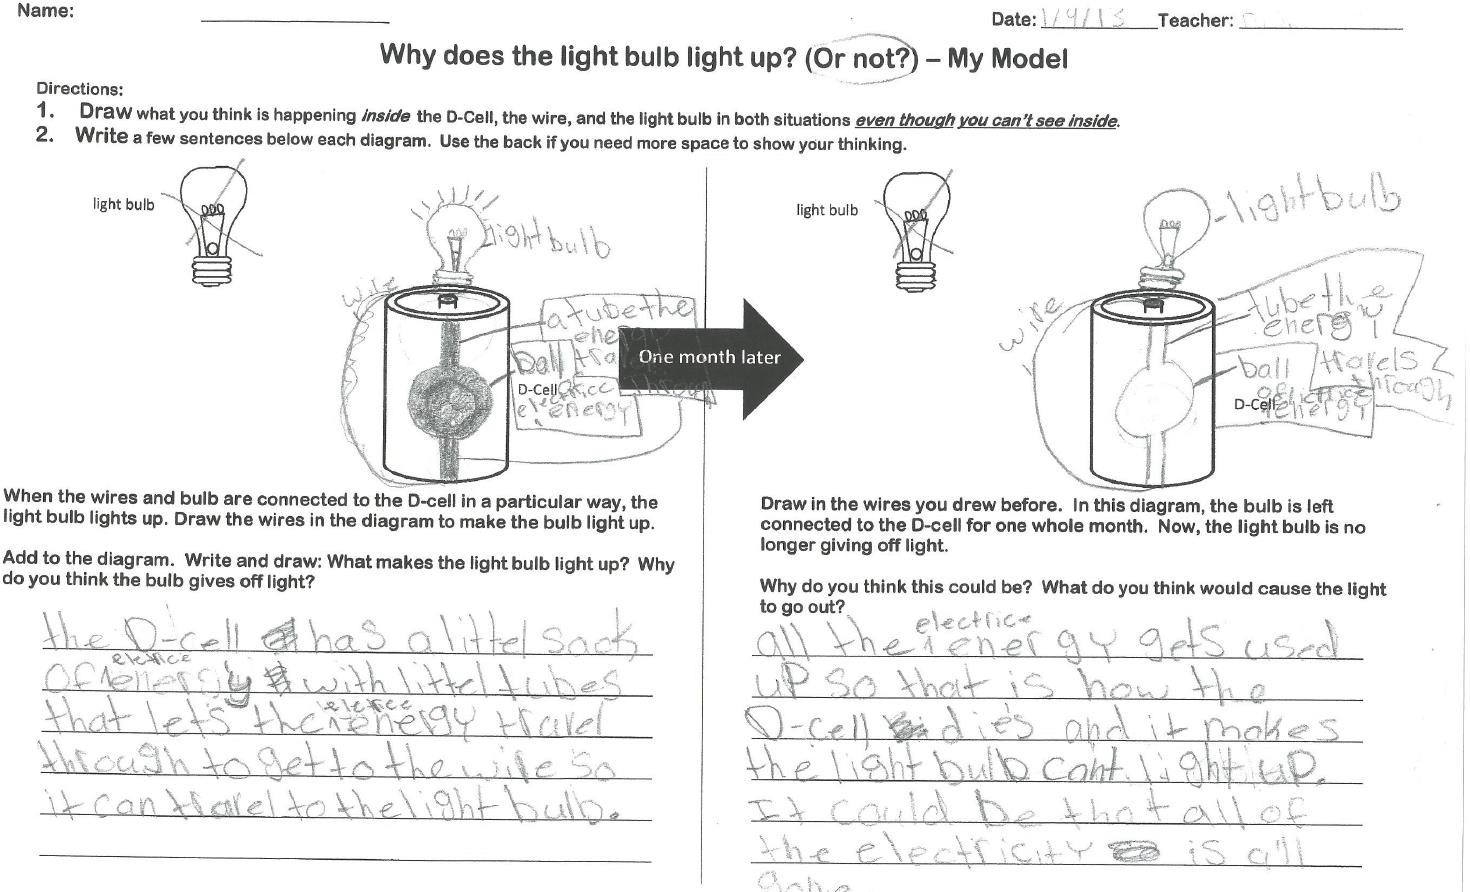 Name:
Date: 1/9/13 Teacher:
Why does the light bulb light up? (Or not?) – My Model
Directions:
1. Draw what you think is happening inside the D-Cell, the wire, and the light bulb in both situations even though you can't see inside.
2. Write a few sentences below each diagram. Use the back if you need more space to show your thinking.
light bulb
lightbulb
wire
a tube the
ball
D-Cell
energy
One month later
light bulb
lightbulb
wire
tube the
energy
travels
through
ball
D-Cell
energy
When the wires and bulb are connected to the D-cell in a particular way, the
light bulb lights up. Draw the wires in the diagram to make the bulb light up.
Add to the diagram. Write and draw: What makes the light bulb light up? Why
do you think the bulb gives off light?
the D-cell has a littel sack
of eletrice energy with littel tubes
that let's the eletrce energy travel
through to get to the wire so
it can travel to the light bulb.
Draw in the wires you drew before. In this diagram, the bulb is left
connected to the D-cell for one whole month. Now, the light bulb is no
longer giving off light.
Why do you think this could be? What do you think would cause the light
to go out?
all the electrice energy gets used
up so that is how the
D-cell dies and it makes
the light bulb cant light up.
It could be that all of
the electricity is all
gone